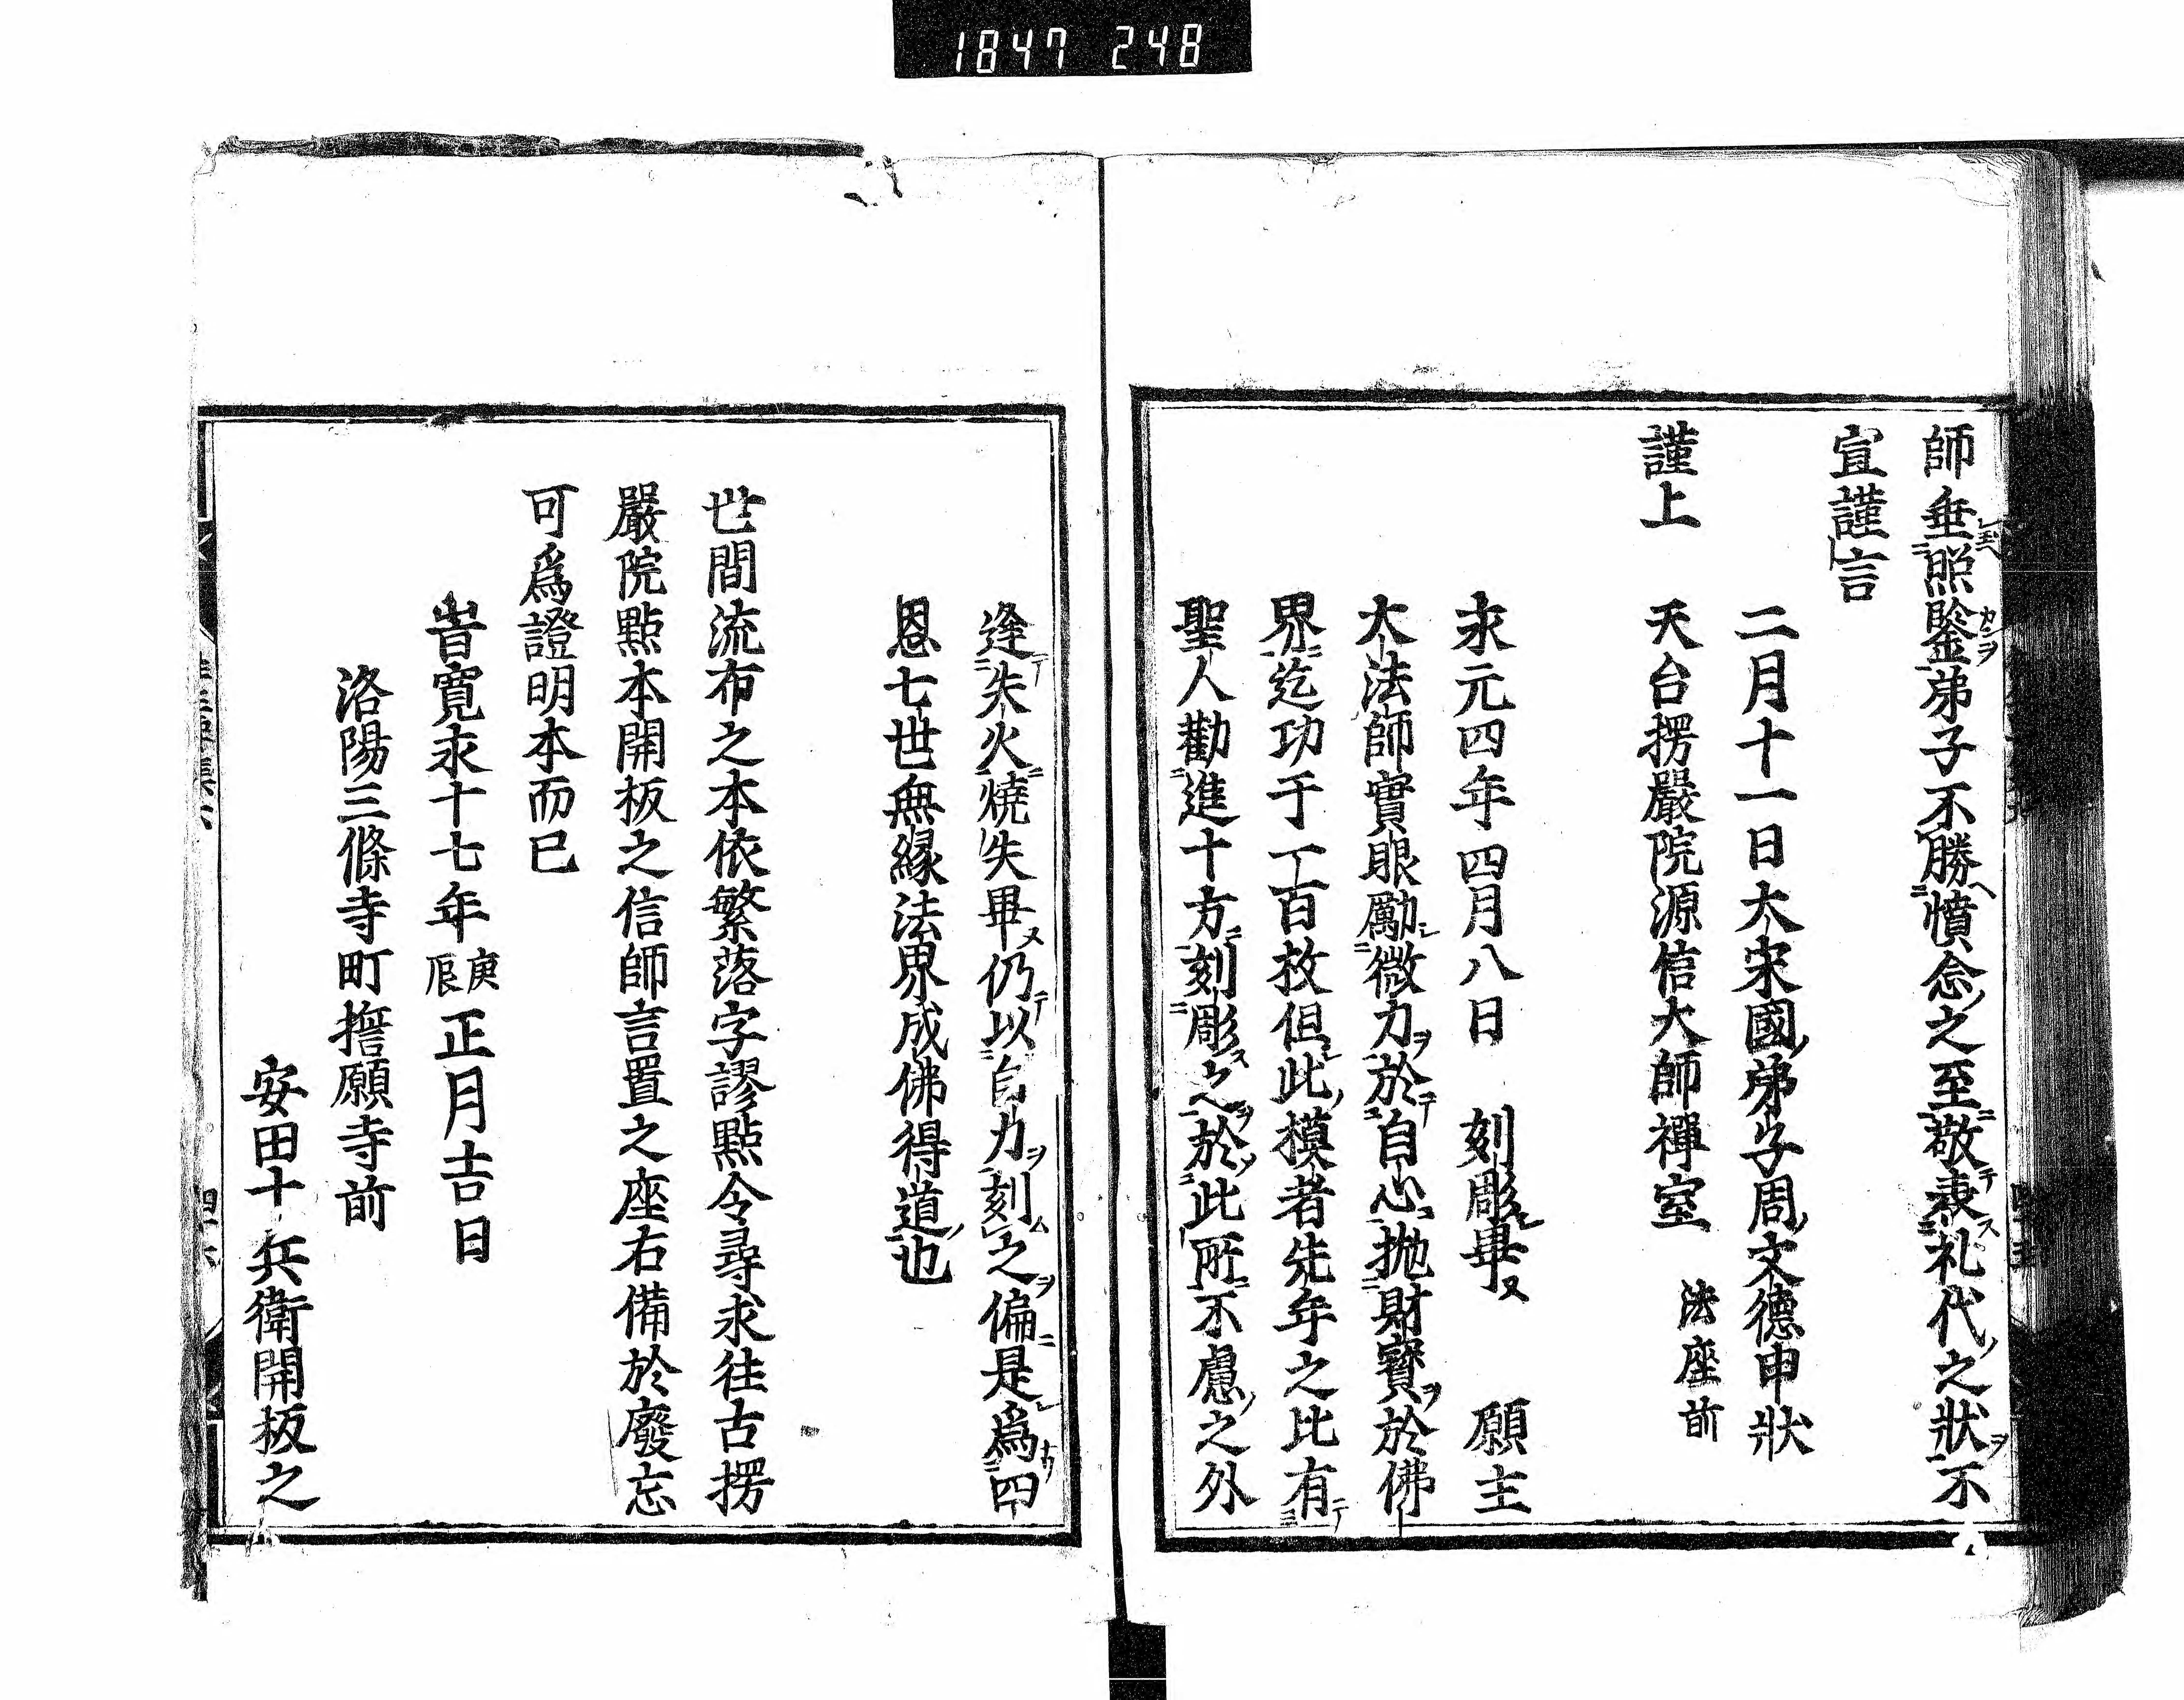 1847 248
師垂照鑒弟子不勝憤念之至敬表礼代之狀不
宣謹言
二月十一日大宋國弟子周文德申狀
謹上 天台楞嚴院源信大師禪室 法座前
永元四年四月八日 刻彫畢 願主
大法師實眼勵微力於自心抛財寶於佛
界迄功于一百枚但此模者先年之比有
聖人勸進十方刻彫之於此所不慮之外
逢失火燒失畢仍以自力刻之偏是爲四
恩七世無緣法界成佛得道也
世間流布之本依繁落字謬點令尋求往古楞
嚴院點本開板之信師言置之座右備於廢忘
可爲證明本而已
旹寬永十七年庚辰正月吉日
洛陽三條寺町誓願寺前
安田十兵衛開板之